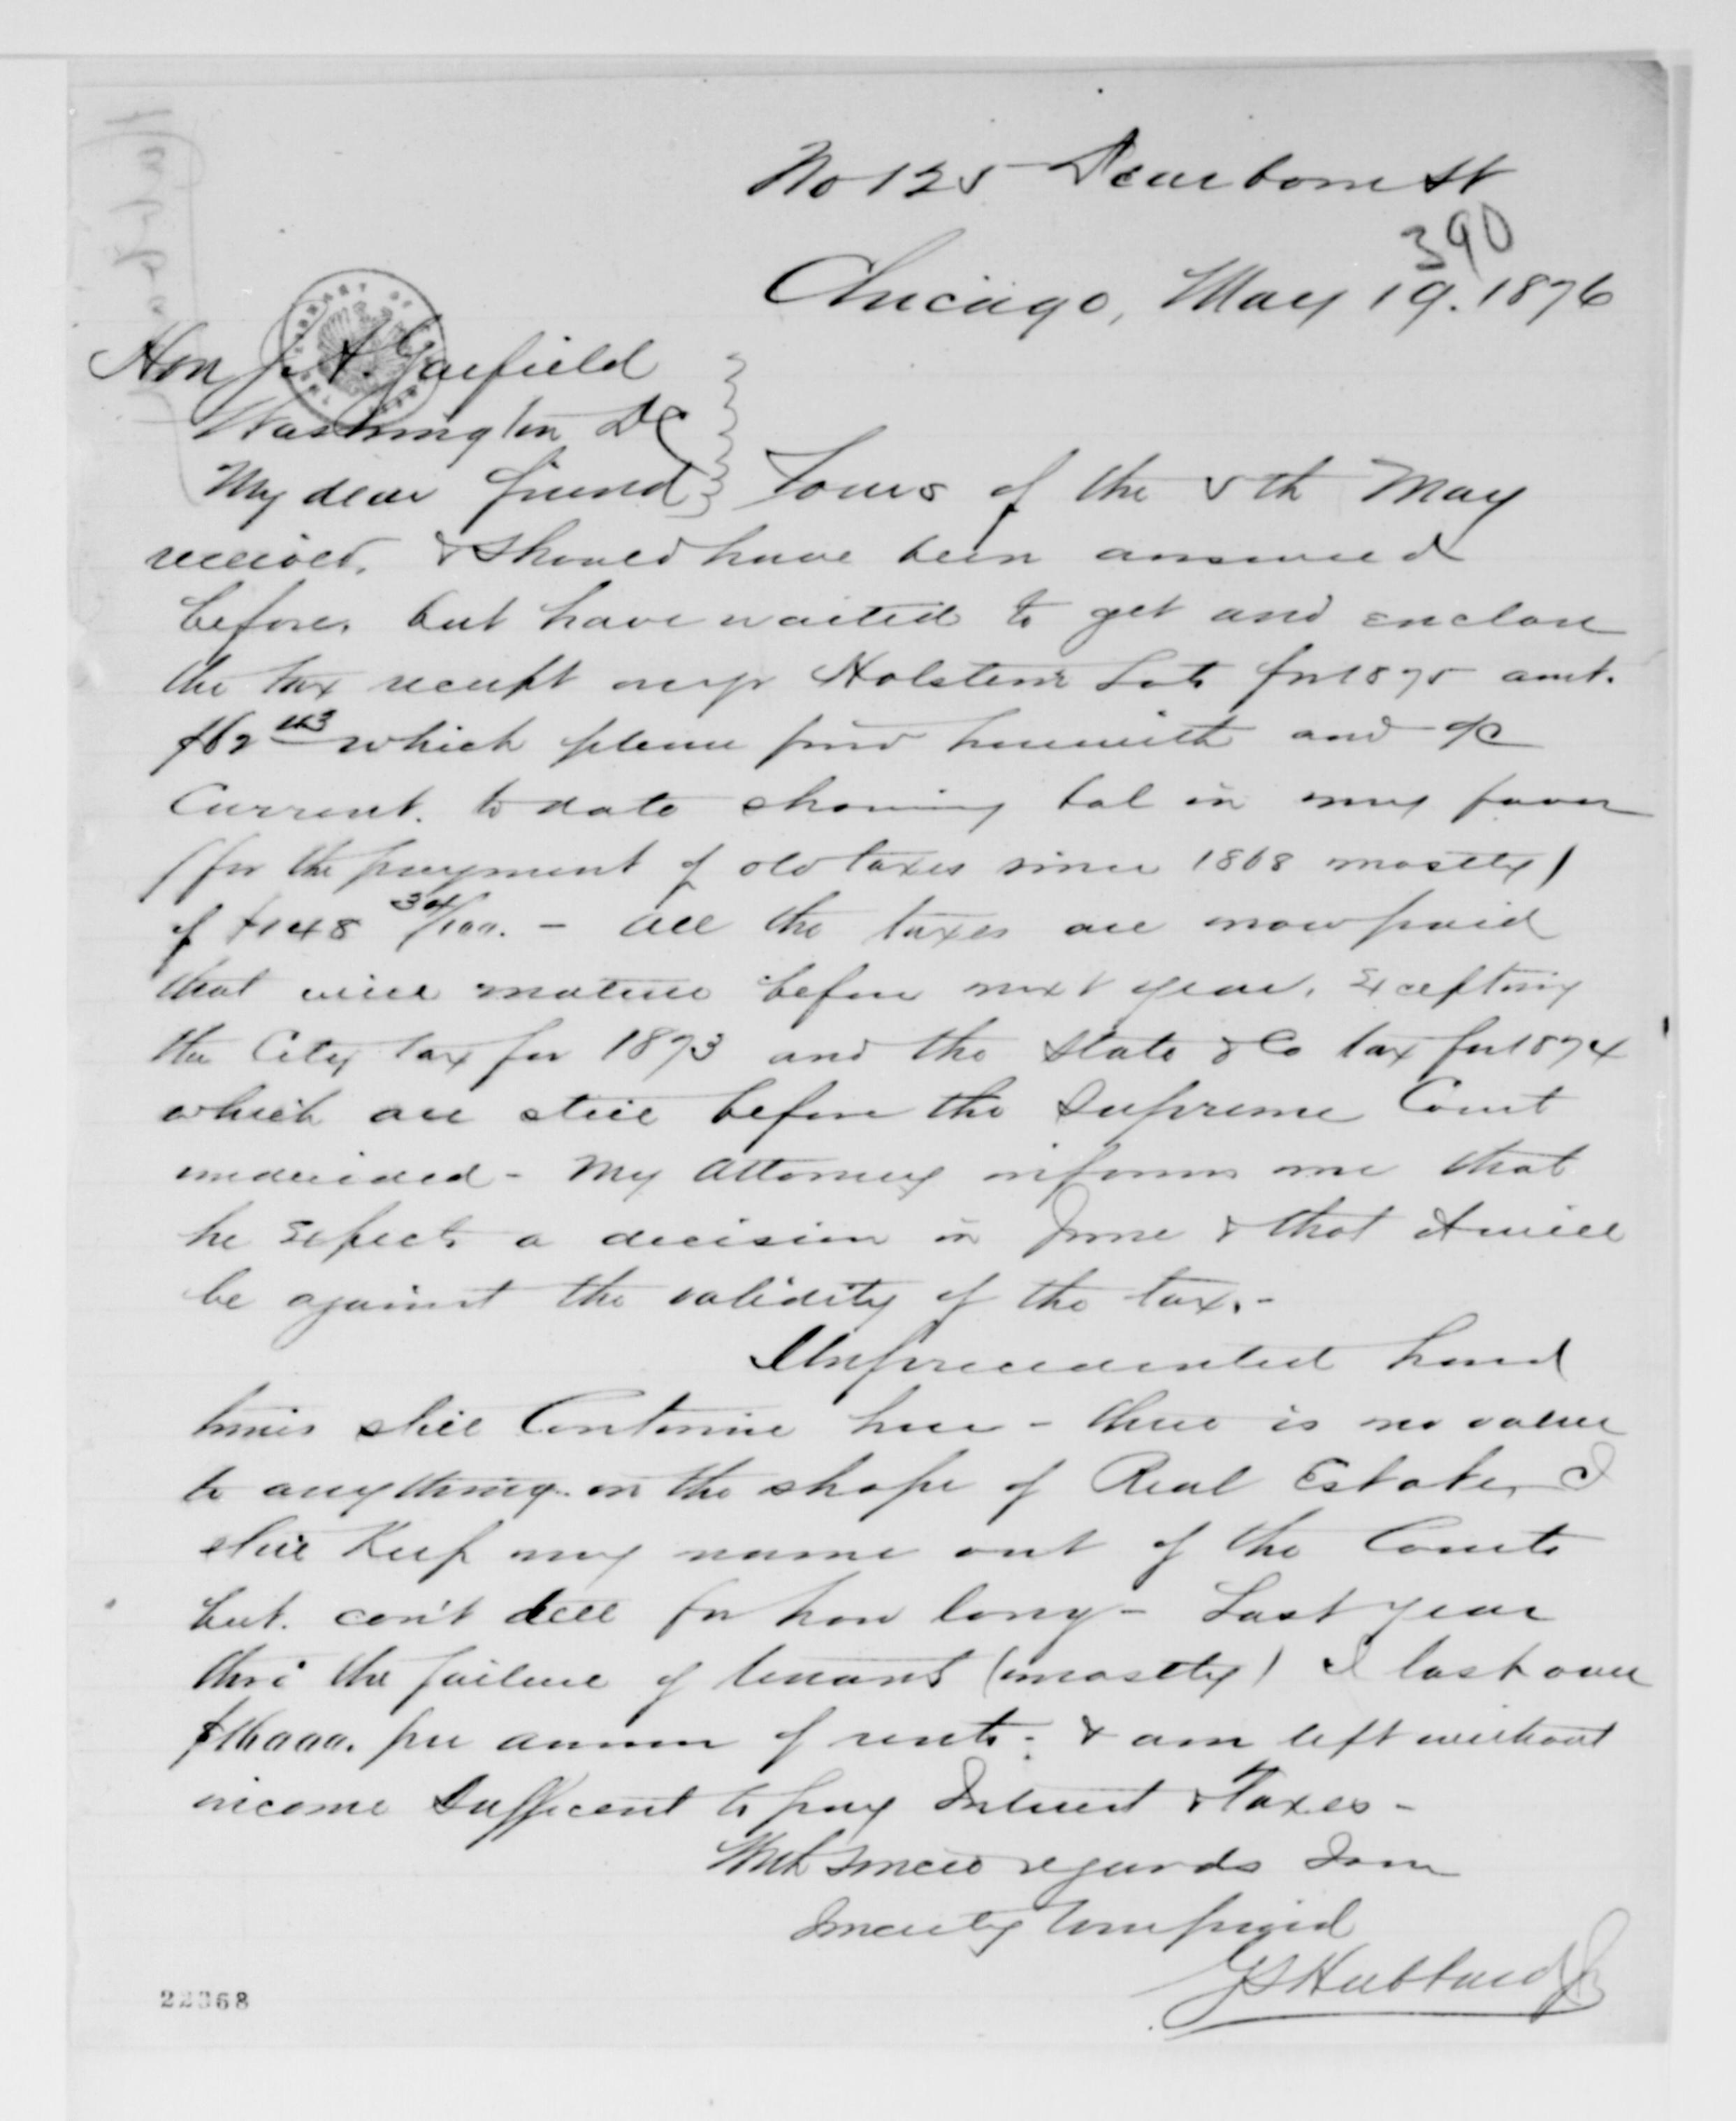 No 125 Dearborn St
390
Chicago, May 19. 1876
Hon J. A. Garfield
Washington DC
My dear friend Yours of the 5th May
received, & should have been answered
before, but have waited to get and enclose
the tax receipt Holstein Lots for 1875 amt.
which please find herewith and a/c
Current. to date showing bal in my favor
(for the payment of old taxes since 1868 mostly)
of $148 34/100. - All the taxes are now paid
that will mature before next year, Excepting
the City tax for 1873 and the State & Co tax for 1874
which are still before the Supreme Court
undecided - My Attorney informs me that
he Expects a decision in June & that it will
be against the validity of the tax. -
Unprecedented hard
times still Continue here - there is no value
to anything in the shape of Real Estate, I
still Keep my name out of the Courts
but. can't tell for how long - Last year
thro' the failure of tenants (mostly) I lost over
$16000. per annum of rents. & am left without
income Sufficent to pay Interest & Taxes -
With Sincere regards I am
Sincerely Your friend
G S Hubbard Jr
22368